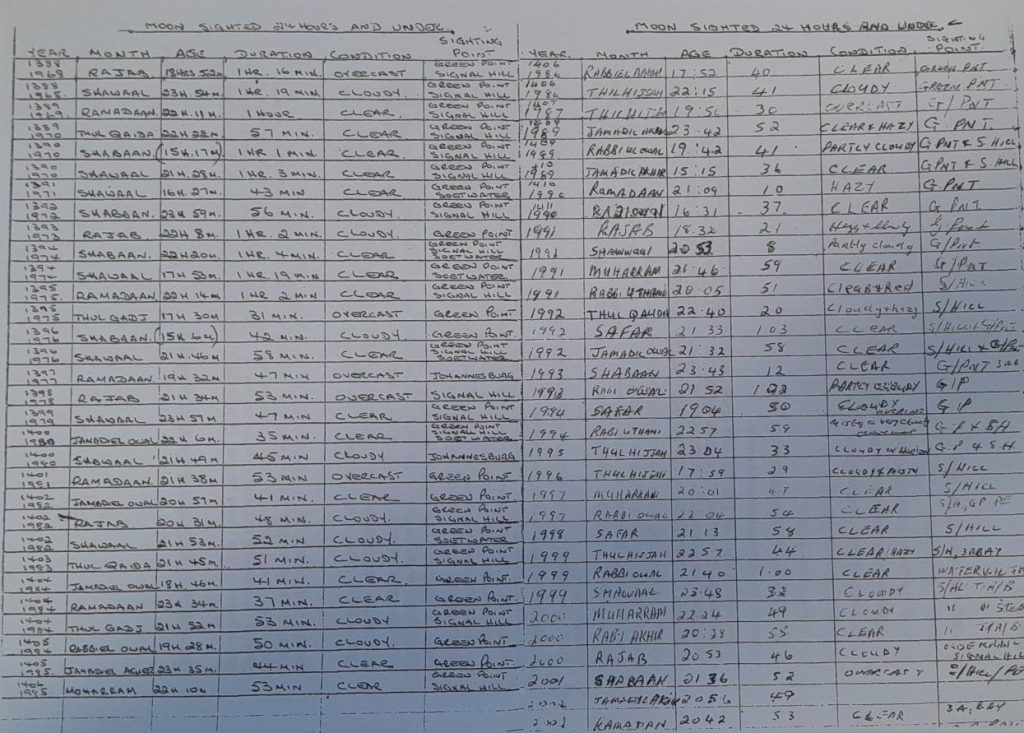 MOON SIGHTED 24 HOURS AND UNDER
YEAR MONTH AGE DURATION CONDITION SIGHTING POINT
1388 1968 RAJAB 18HRS 52M 1 HR. 16 MIN. OVERCAST GREEN POINT SIGNAL HILL
1388 1968. SHAWAAL 23H 54M. 1 HR. 19 MIN CLOUDY. GREEN POINT SIGNAL HILL
1389 1969. RAMADAAN. 22H.11M. 1 HOUR CLEAR. GREEN POINT SIGNAL HILL
1389 1970 THUL QAIDA 22H 22M. 57 MIN. CLEAR GREEN POINT SIGNAL HILL
1390 1970 SHABAAN (15H.17M) 1 HR 1 MIN. CLEAR. GREEN POINT SIGNAL HILL
1390 1970 SHAWAAL 21H.28M. 1 HR. 3 MIN. CLEAR GREEN POINT SIGNAL HILL
1391 1971 SHAWAAL 16H.27M. 43 MIN CLEAR GREEN POINT SOETWATER
1392 1972 SHABAAN. 23H 59M. 56 MIN. CLOUDY. GREEN POINT SIGNAL HILL
1393 1973 RAJAB. 22H 8M. 1 HR. 2 MIN. CLOUDY. GREEN POINT
1394 1974 SHABAAN. 22H 20M. 1 HR. 4 MIN CLEAR GREEN POINT SIGNAL HILL SOETWATER
1394 1974 SHAWAAL 17H 53M. 1 HR. 19 MIN CLEAR GREEN POINT SIGNAL HILL
1395 1975. RAMADAAN. 22H 14M. 1 HR 2 MIN. CLEAR. GREEN POINT SIGNAL HILL
1395 1975 THUL GADJ 17H 30M 31 MIN. OVERCAST GREEN POINT
1396 1976 SHABAAN. 42 MIN. CLOUDY. GREEN POINT SIGNAL HILL
1396 1976 SHAWAAL 21H.46M 58 MIN. CLEAR. GREEN POINT SIGNAL HILL SOETWATER
1397 1977 RAMADAAN. 19H 32M 47 MIN OVERCAST JOHANNESBURG
1398 1978 RAJAB 21H 34M 53 MIN. OVERCAST SIGNAL HILL
1399 1979 SHAWAAL 23H 57M 47 MIN. CLEAR. GREEN POINT SIGNAL HILL
1400 1980 JAMADIEL OWAL 22H 6M. 35 MIN. CLEAR GREEN POINT SIGNAL HILL SOETWATER
1400 1980 SHAWAAL 21H 49M 45 MIN CLOUDY JOHANNESBURG
1401 1981 RAMADAAN. 21H 38M 53 MIN OVERCAST GREEN POINT SIGNAL HILL
1402 1982 JAMADIEL OWAL 20H 57M 41 MIN. CLEAR. GREEN POINT SIGNAL HILL
1402 1982 RAJAB 20H 31M. 48 MIN. CLOUDY. GREEN POINT SIGNAL HILL
1402 1982 SHAWAAL 21H 53M. 52 MIN CLOUDY. GREEN POINT SOETWATER
1403 1983 THUL QAIDA 21H 45M. 51 MIN. CLOUDY. GREEN POINT SIGNAL HILL
1404 1984 JAMADIEL OWAL 18H 46M. 41 MIN. CLEAR. GREEN POINT
1404 1984 RAMADAAN 23H 34M. 37 MIN CLEAR GREEN POINT.
1404 1984 THUL GADJ 21H 52M 53 MIN. CLOUDY. GREEN POINT SIGNAL HILL
1405 1984 RABBIEL OWAL 19H 28M. 50 MIN. CLOUDY. GREEN POINT
1405 1985. 23H 35M. 44 MIN CLEAR GREEN POINT
1406 1985 MOHARRAM 22H 10M 53 MIN CLEAR GREEN POINT SIGNAL HILL
MOON SIGHTED 24 HOURS AND UNDER
YEAR. MONTH AGE DURATION CONDITION SIGHTING POINT
1406 1986 17:52 40 CLEAR GREEN PNT
1406 1986 THILHIJJAH 22:15 41 CLOUDY GREEN PNT.
1407 1987 THILHIJJAH 19:56 30 OVERCAST G/PNT
1989 JAMADIL AKHIR 23:42 52 CLEAR & HAZY G PNT.
1989 RABBI UL OWAL 19:42 41 PARTLY CLOUDY G PNT & S HILL
1989 JAMADIL AKHIR 15:15 36 CLEAR GPNT & S. HILL
1410 1990 RAMADAAN 21:09 10 HAZY G PNT
1411 1990 16:31 37. CLEAR G PNT.
1991 RAJAB 18.32 21
1991 SHAWWAL 20 53 8 Partly cloudy G/Pnt
1991 MUHARRAM 21:46 59 CLEAR G/PNT
1991 RABBI UTHANI 20:05 51 S/HILL
1992 THUL QAUDA 22:40 20 S/HILL
1992 SAFAR 21:33 103 CLEAR
1992 JAMADIL OWAL 21:32 58 CLEAR S/HILL &
1993 SHABAAN 23:43 12 CLEAR G/PNT
1993 RABI OWAL 21 52 PARTLY CLOUDY G/P
1994 SAFAR 1904 50 CLOUDY G/P
1994 RABI UTHANI 2257 59 G P & SH
1995 THULHIJJAH 23 04 33 G.P & S H
1996 THULHIJJAH 17:59 29 CLOUDY & MISTY S/HILL
1997 MUHARRAM 20:01 CLEAR S/HILL
1997 RABBI OWAL 22:04 54 CLEAR S/H, GP PE
1998 SAFAR 21 13 58 CLEAR S/HILL
1999 THULHIJJAH 22 57 44 CLEAR/HAZY S/H,
1999 RABBI OWAL 21 40 1.00 CLEAR
1999 SHAWAAL 23:48 32 CLOUDY
2000 MUHARRAM 22:24 49 CLOUDY
2000 RABI AKHIR 20:28 55 CLEAR
2000 RAJAB 20 53 46 CLOUDY SIGNAL HILL
2001 SHABAAN 21 36 52 OVERCAST
2056 49
RAMADAN 2042 53 CLEAR